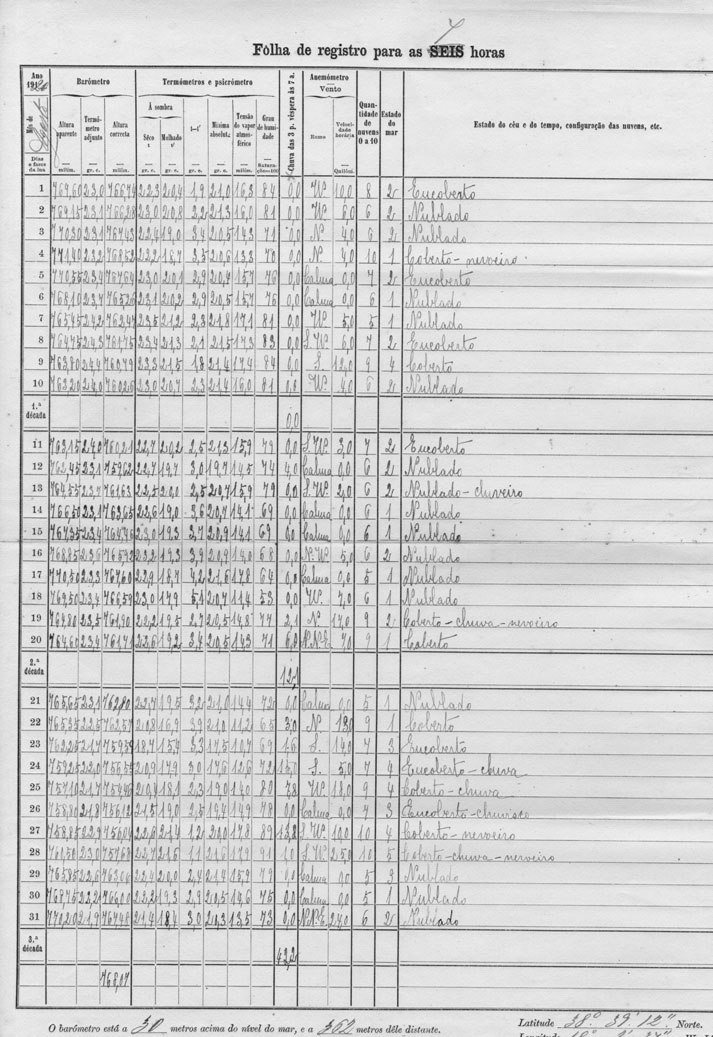 7
Fôlha de registro para as SEIS horas
Ano 1920 Barómetro Termómetros e psicrómetro Chuva das 3 p. véspera às 7 a. Anemómetro — Vento Quantidade de nuvens 0 a 10 Estado do mar Estado do céu e do tempo, configuração das nuvens, etc.
Mês de
Dias e fases da lua Altura aparente Termómetro adjunto Altura correcta À sombra Sêco t Molhado t' t—t' Máxima absoluta Tensão do vapor atmosférico Grau de humidade Rumo Velocidade horária
milím. gr. c. milím. gr. c. gr. c. gr. c. milím. Saturação=100 Quilóm.
1 769,60 23,0 766,74 22,3 20,4 1,9 21,0 16,3 84 0,0 W. 10,0 8 2 Encoberto
2 769,15 23,1 766,28 23,0 20,8 2,2 21,3 16,0 81 0,0 W. 6,0 6 2 Nublado
3 770,30 23,1 767,43 22,4 19,0 3,4 20,5 14,3 71 0,0 N. 4,0 6 2 Nublado
4 771,40 23,2 768,52 22,2 18,7 3,5 20,6 13,8 70 0,0 N. 4,0 10 1 Coberto-nevoeiro
5 770,55 23,4 767,64 23,0 20,1 2,9 20,4 15,7 76 0,0 Calma 0,0 7 2 Encoberto
6 768,10 23,7 765,26 23,1 20,2 2,9 20,5 15,7 76 0,0 Calma 0,0 6 1 Nublado
7 765,45 24,2 762,47 23,5 21,2 2,3 21,8 17,1 81 0,0 W. 5,0 5 1 Nublado
8 764,75 24,3 761,75 23,4 21,3 2,1 21,5 17,3 83 0,0 S.W. 6,0 7 2 Encoberto
9 763,80 24,4 760,79 23,3 21,5 1,8 21,4 17,4 84 0,0 S. 12,0 9 4 Coberto
10 763,20 24,0 760,26 23,0 20,7 2,3 21,4 16,0 81 0,8 W. 4,0 6 2 Nublado
1.ª década 0,0
11 763,15 24,0 760,21 22,7 20,2 2,5 21,3 15,9 79 0,0 S.W. 3,0 7 2 Encoberto
12 762,45 23,1 759,62 22,7 19,7 3,0 19,7 14,5 74 4,0 Calma 0,0 6 2 Nublado
13 764,55 23,7 761,63 22,5 20,0 2,5 20,7 15,9 79 0,0 S.W. 2,0 6 2 Nublado-chuveiro
14 766,50 23,1 763,65 22,6 19,0 3,6 20,7 14,1 69 0,0 Calma 0,0 6 1 Nublado
15 767,35 23,4 764,46 23,0 19,3 3,7 20,9 14,1 69 0,0 Calma 0,0 6 1 Nublado
16 768,85 23,6 765,93 23,2 19,3 3,9 20,9 14,0 68 0,0 N.W. 5,0 6 2 Nublado
17 770,50 23,3 767,60 22,9 18,7 4,2 21,6 17,8 64 0,0 Calma 0,0 5 1 Nublado
18 769,50 23,4 766,59 23,0 17,9 5,1 20,7 11,4 53 0,0 W. 7,0 6 1 Nublado
19 764,80 23,5 761,90 22,2 19,5 2,7 20,5 14,8 77 2,1 N. 17,0 9 2 Coberto-chuva-nevoeiro
20 764,60 23,4 761,71 22,6 19,2 3,4 20,5 14,3 71 6,8 N.N.E. 7,0 9 1 Coberto
2.ª década 12,1
21 765,65 23,1 762,80 22,7 19,5 3,2 21,0 14,4 72 0,0 Calma 0,0 5 1 Nublado
22 765,35 22,5 762,57 20,8 16,9 3,9 21,0 11,2 65 3,0 N. 13,0 9 1 Coberto
23 762,25 21,7 759,59 18,7 15,4 3,3 17,5 10,7 69 1,6 S. 14,0 7 3 Encoberto
24 759,25 22,0 756,55 20,9 17,9 3,0 17,6 12,6 72 15,0 S. 5,0 7 4 Encoberto-chuva
25 757,10 21,7 754,46 20,4 18,1 2,3 19,0 14,0 80 7,8 W. 18,0 9 4 Coberto-chuva
26 758,80 21,8 756,12 21,5 19,0 2,5 19,4 14,9 78 0,0 Calma 0,0 7 3 Encoberto-chuvisco
27 758,85 22,9 756,04 22,6 21,4 1,2 20,0 17,8 89 13,8 S.W. 10,0 10 4 Coberto-nevoeiro
28 760,50 23,0 757,68 22,7 21,6 1,1 21,6 17,9 91 1,0 S.W. 25,0 10 5 Coberto-chuva-nevoeiro
29 765,85 22,6 763,06 22,4 20,0 2,4 21,4 15,9 79 1,0 Calma 0,0 5 3 Nublado
30 768,75 23,2 766,00 22,2 19,3 2,9 20,5 14,6 75 0,0 Calma 0,0 5 1 Nublado
31 770,20 21,9 767,48 21,4 18,4 3,0 20,3 13,5 73 0,0 N.N.E. 27,0 6 2 Nublado
3.ª década 43,2
763,07
O barómetro está a 30 metros acima do nível do mar, e a 362 metros dêle distante.
Latitude 38° 39' 12" Norte.